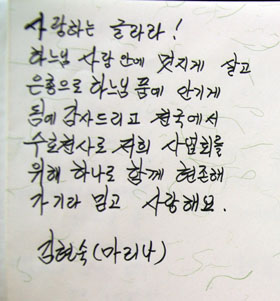 사랑하는 글라라!
하느님 사랑 안에 멋지게 살고
은총으로 하느님 품에 안기게
됨에 감사드리고 천국에서
수호천사로 저희 사별회를
위해 하나로 함께 현존해
가기라 믿고 사랑해요.
김현숙(마리나)